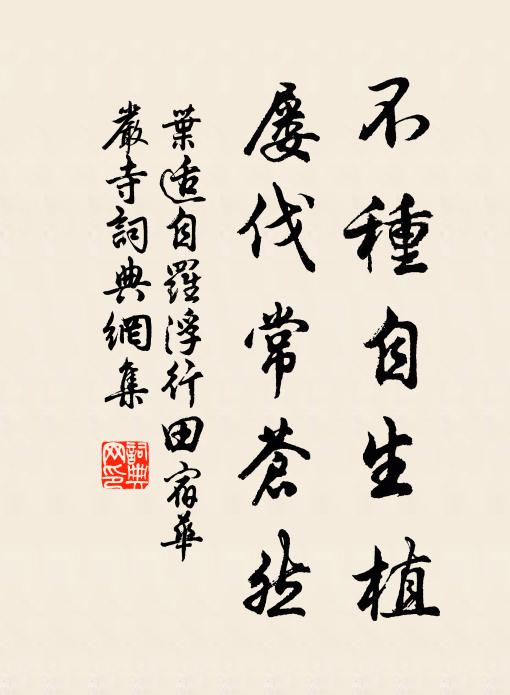 不種自生植
屡伐常蒼然
葉适自羅浮行田宿華
嚴寺詞典網集
詞典
网印